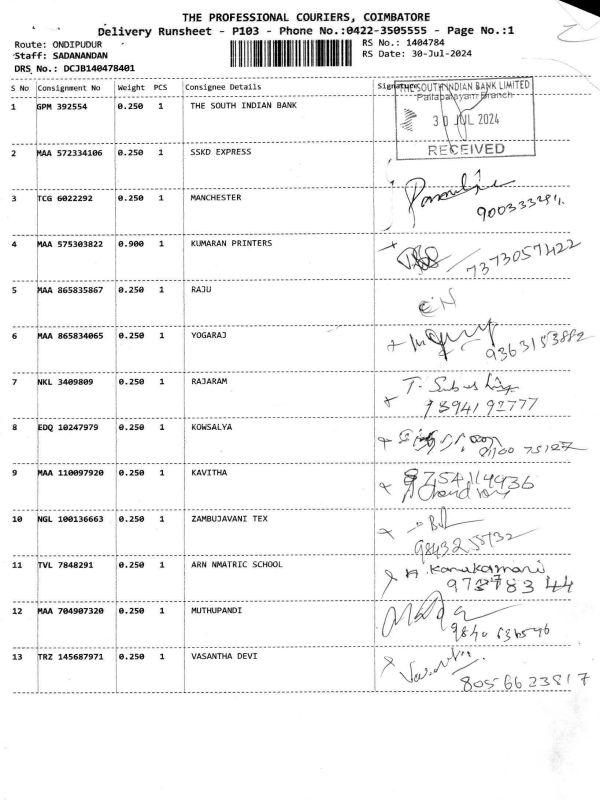 THE PROFESSIONAL COURIERS, COIMBATORE
Delivery Runsheet - P103 - Phone No.:0422-3505555 - Page No.:1
Route: ONDIPUDUR RS No.: 1404784
Staff: SADANANDAN RS Date: 30-Jul-2024
DRS No.: DCJB140478401
S No Consignment No Weight PCS Consignee Details Signature
THE SOUTH INDIAN BANK LIMITED
Pallapalayam Branch
30 JUL 2024
RECEIVED
1 GPM 392554 0.250 1 THE SOUTH INDIAN BANK
2 MAA 572334106 0.250 1 SSKD EXPRESS
3 TCG 6022292 0.250 1 MANCHESTER
4 MAA 575303822 0.900 1 KUMARAN PRINTERS
7373057422
5 MAA 865835867 0.250 1 RAJU
6 MAA 865834065 0.250 1 YOGARAJ
9363153882
7 NKL 3409809 0.250 1 RAJARAM
9394192777
8 EDQ 10247979 0.250 1 KOWSALYA
9 MAA 110097920 0.250 1 KAVITHA
10 NGL 100136663 0.250 1 ZAMBUJAVANI TEX
11 TVL 7848291 0.250 1 ARN NMATRIC SCHOOL
12 MAA 704907320 0.250 1 MUTHUPANDI
13 TRZ 145687971 0.250 1 VASANTHA DEVI
8056623817